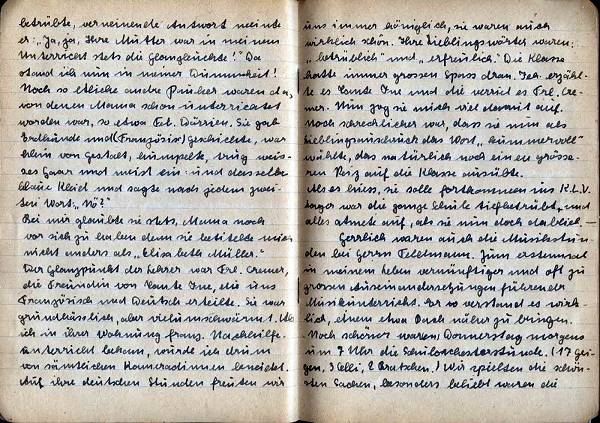 betrübte, verneinende Antwort meinte
er: „Ja, ja, Ihre Mutter war in meinem
Unterricht stets die Glanzleuchte!" Da
stand ich nun in meiner Dummheit!
Noch so etliche andre Pauker waren da,
von denen Mama schon unterrichtet
worden war, so etwa Frl. Dürrien. Sie gab
Erdkunde und (Französisch) Geschichte, war
klein von Gestalt, humpelte, trug weis-
ses Haar und meist ein- und dasselbe
blaue Kleid und sagte nach jedem zwei-
ten Wort: „Nö?"
Bei mir glaubte sie stets, Mama noch
vor sich zu haben denn sie betitelte mich
nicht anders als „Elisabeth Müller."
Der Glanzpunkt der Lehrer war Frl. Cremer,
die Freundin von Tante Ine, die uns
Französisch und Deutsch erteilte. Sie war
grundhässlich, aber vielumschwärmt. Als
ich in ihrer Wohnung franz. Nachhilfe-
unterricht bekam, wurde ich drum
von sämtlichen Kameradinnen beneidet.
Auf ihre deutschen Stunden freuten wir
uns immer königlich, sie waren auch
wirklich schön. Ihre Lieblingswörter waren:
„betrüblich" und „erfreulich." Die Klasse
hatte immer grossen Spass dran. Ich erzähl-
te es Tante Ine und die verriet es Frl. Cre-
mer. Nun zog sie mich viel damit auf.
Noch schrecklicher war, dass sie nun als
Lieblingsausdruck das Wort „kummervoll"
wählte, das natürlich noch einen grösse-
ren Reiz auf die Klasse ausübte.
Als es hiess, sie solle fortkommen ins K.L.V.
Lager war die ganze Schule tiefbetrübt, und
alles atmete auf, als sie nun doch dablieb. —
Herrlich waren auch die Musikstun-
den bei Herrn Feltmann. Zum erstenmal
in meinem Leben vernünftiger und oft zu
grossen Auseinandersetzungen führender
Musikunterricht. Er so verstand es wirk-
lich, einem etwa Bach näher zu bringen.
Noch schöner waren Donnerstag morgens
um 7 Uhr die Schulorchesterstunde. (17 Gei-
gen, 3 Celli, 2 Bratschen.) Wir spielten die schön-
sten Sachen, besonders beliebt waren die